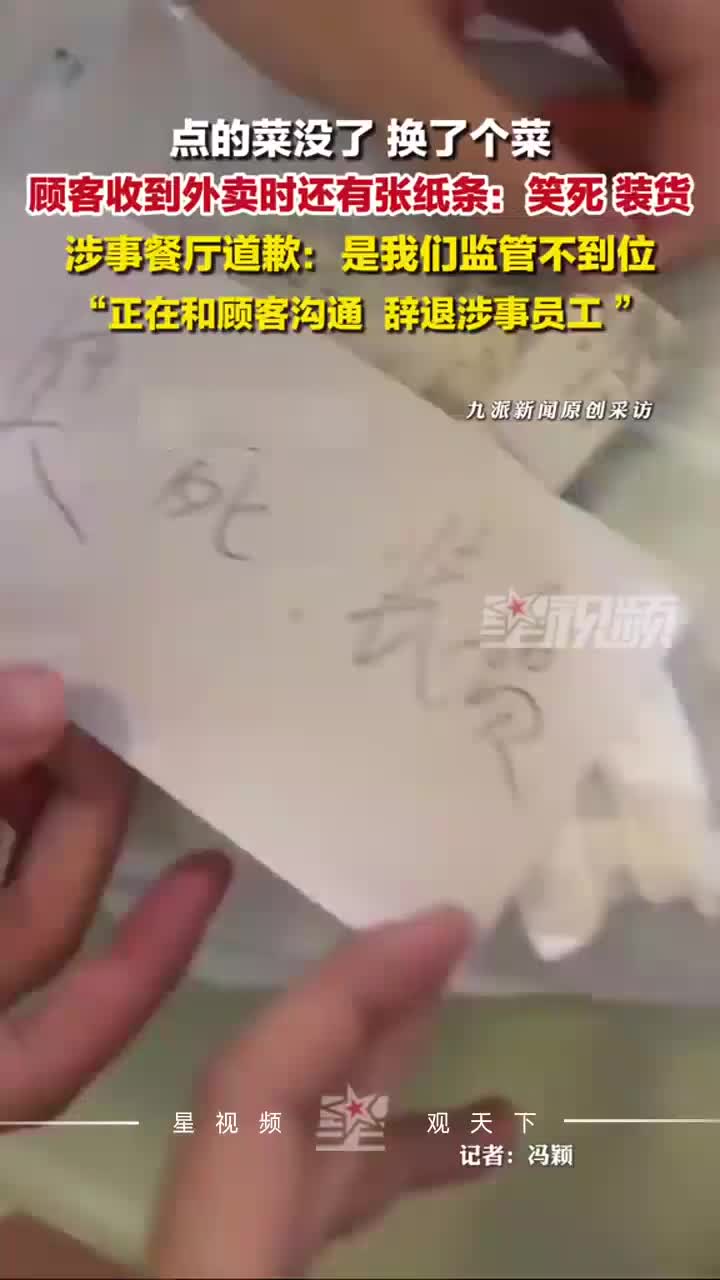 点的菜没了 换了个菜
顾客收到外卖时还有张纸条：笑死 装货
涉事餐厅道歉：是我们监管不到位
“正在和顾客沟通 辞退涉事员工”
九派新闻原创采访
笑死 装货
星视频
星视频 观天下
记者：冯颖